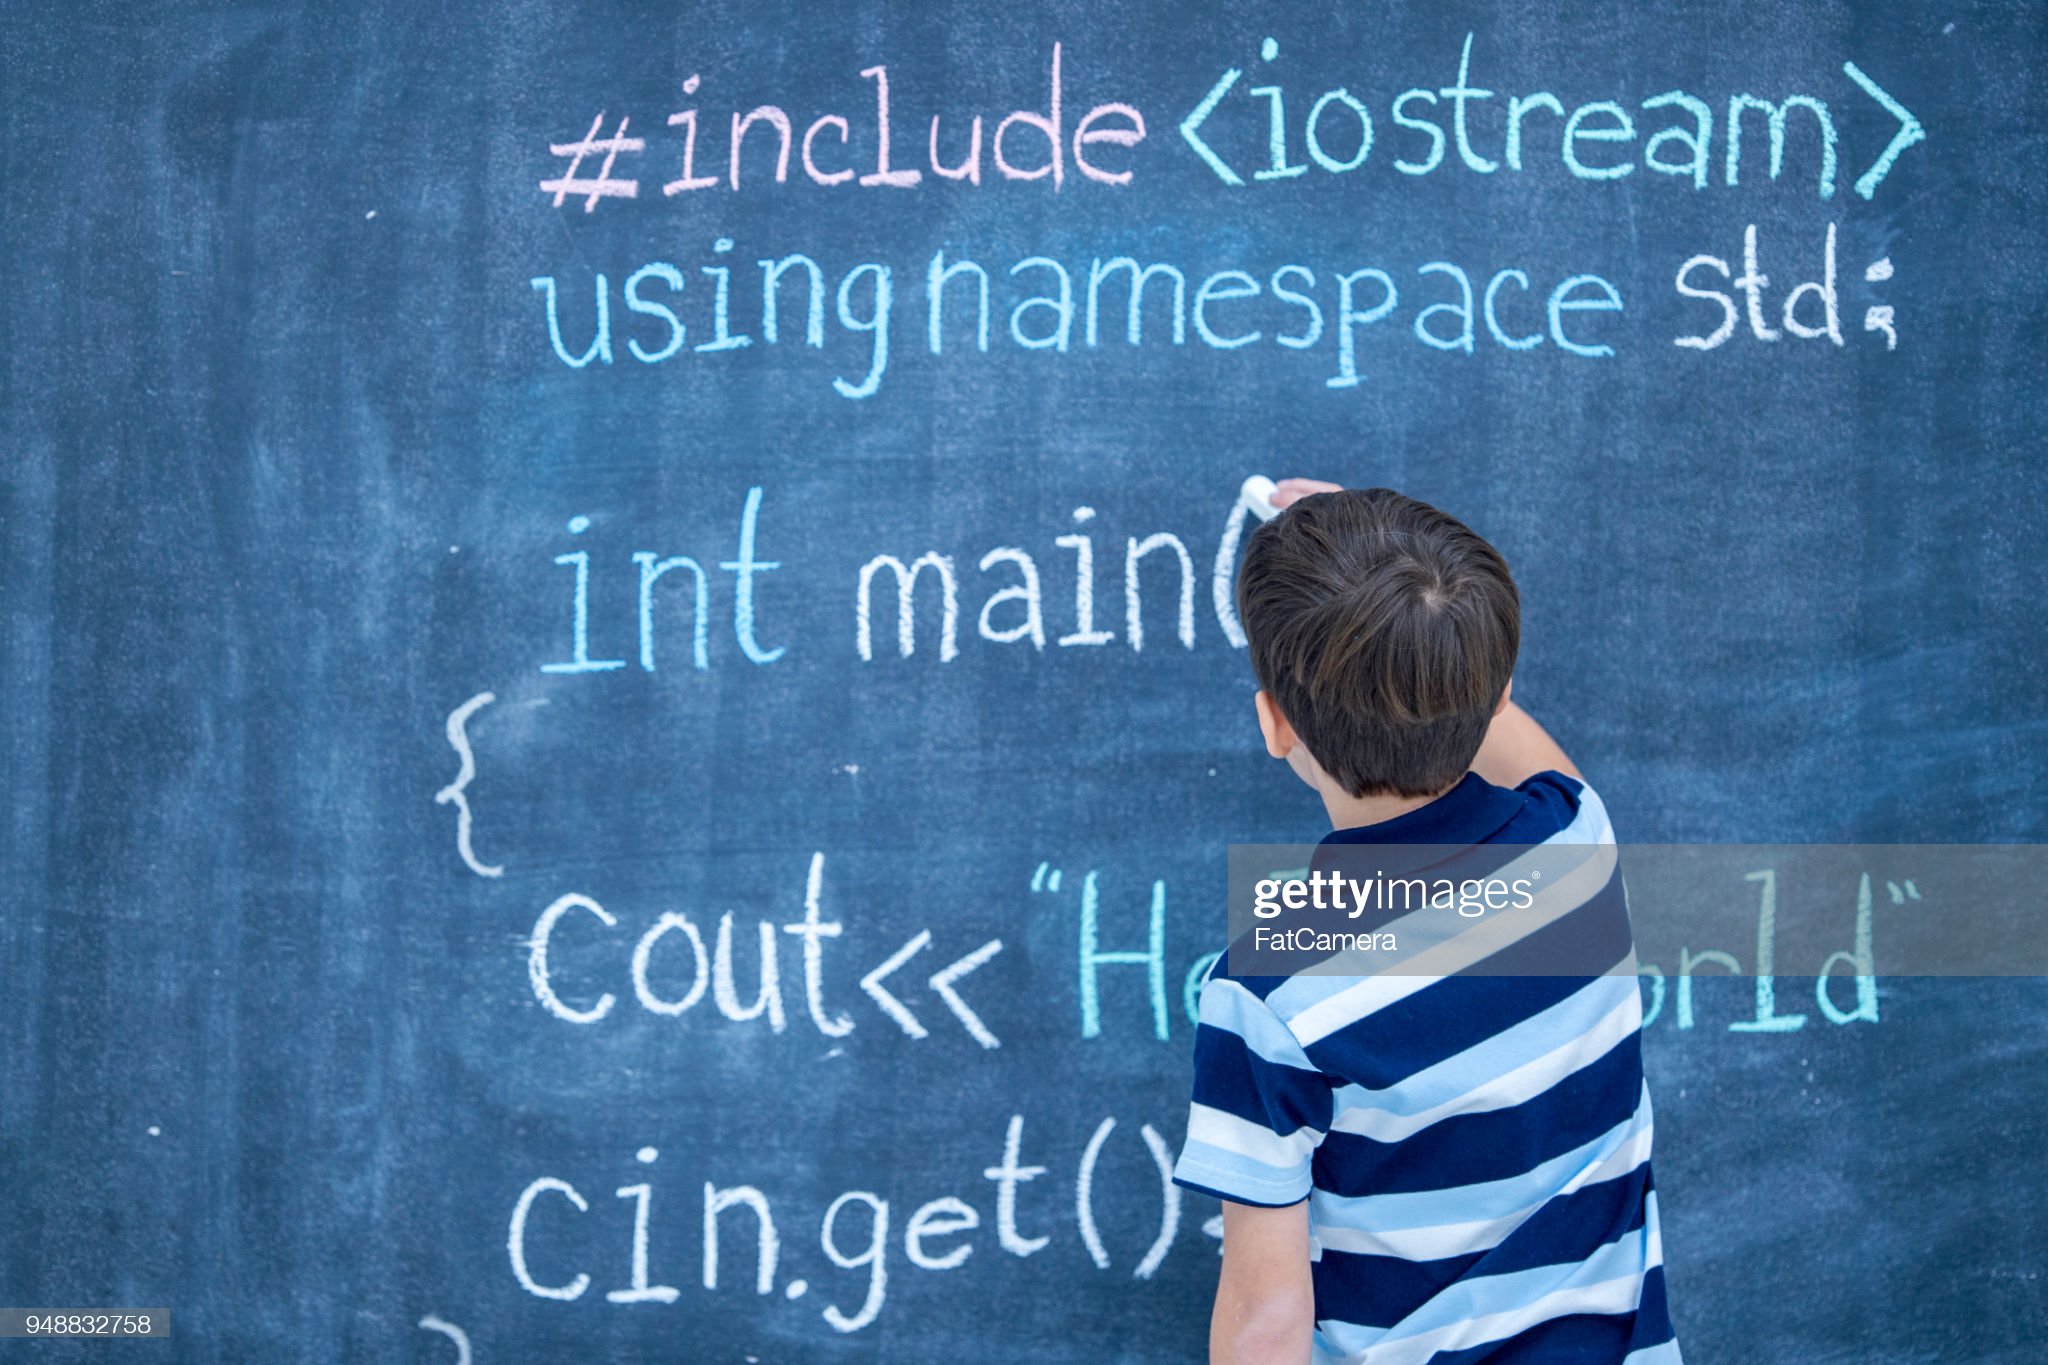 #include <iostream>
using namespace std;
int main(
{
cout<< "H orld"
cin.get();
}
gettyimages®
FatCamera
948832758